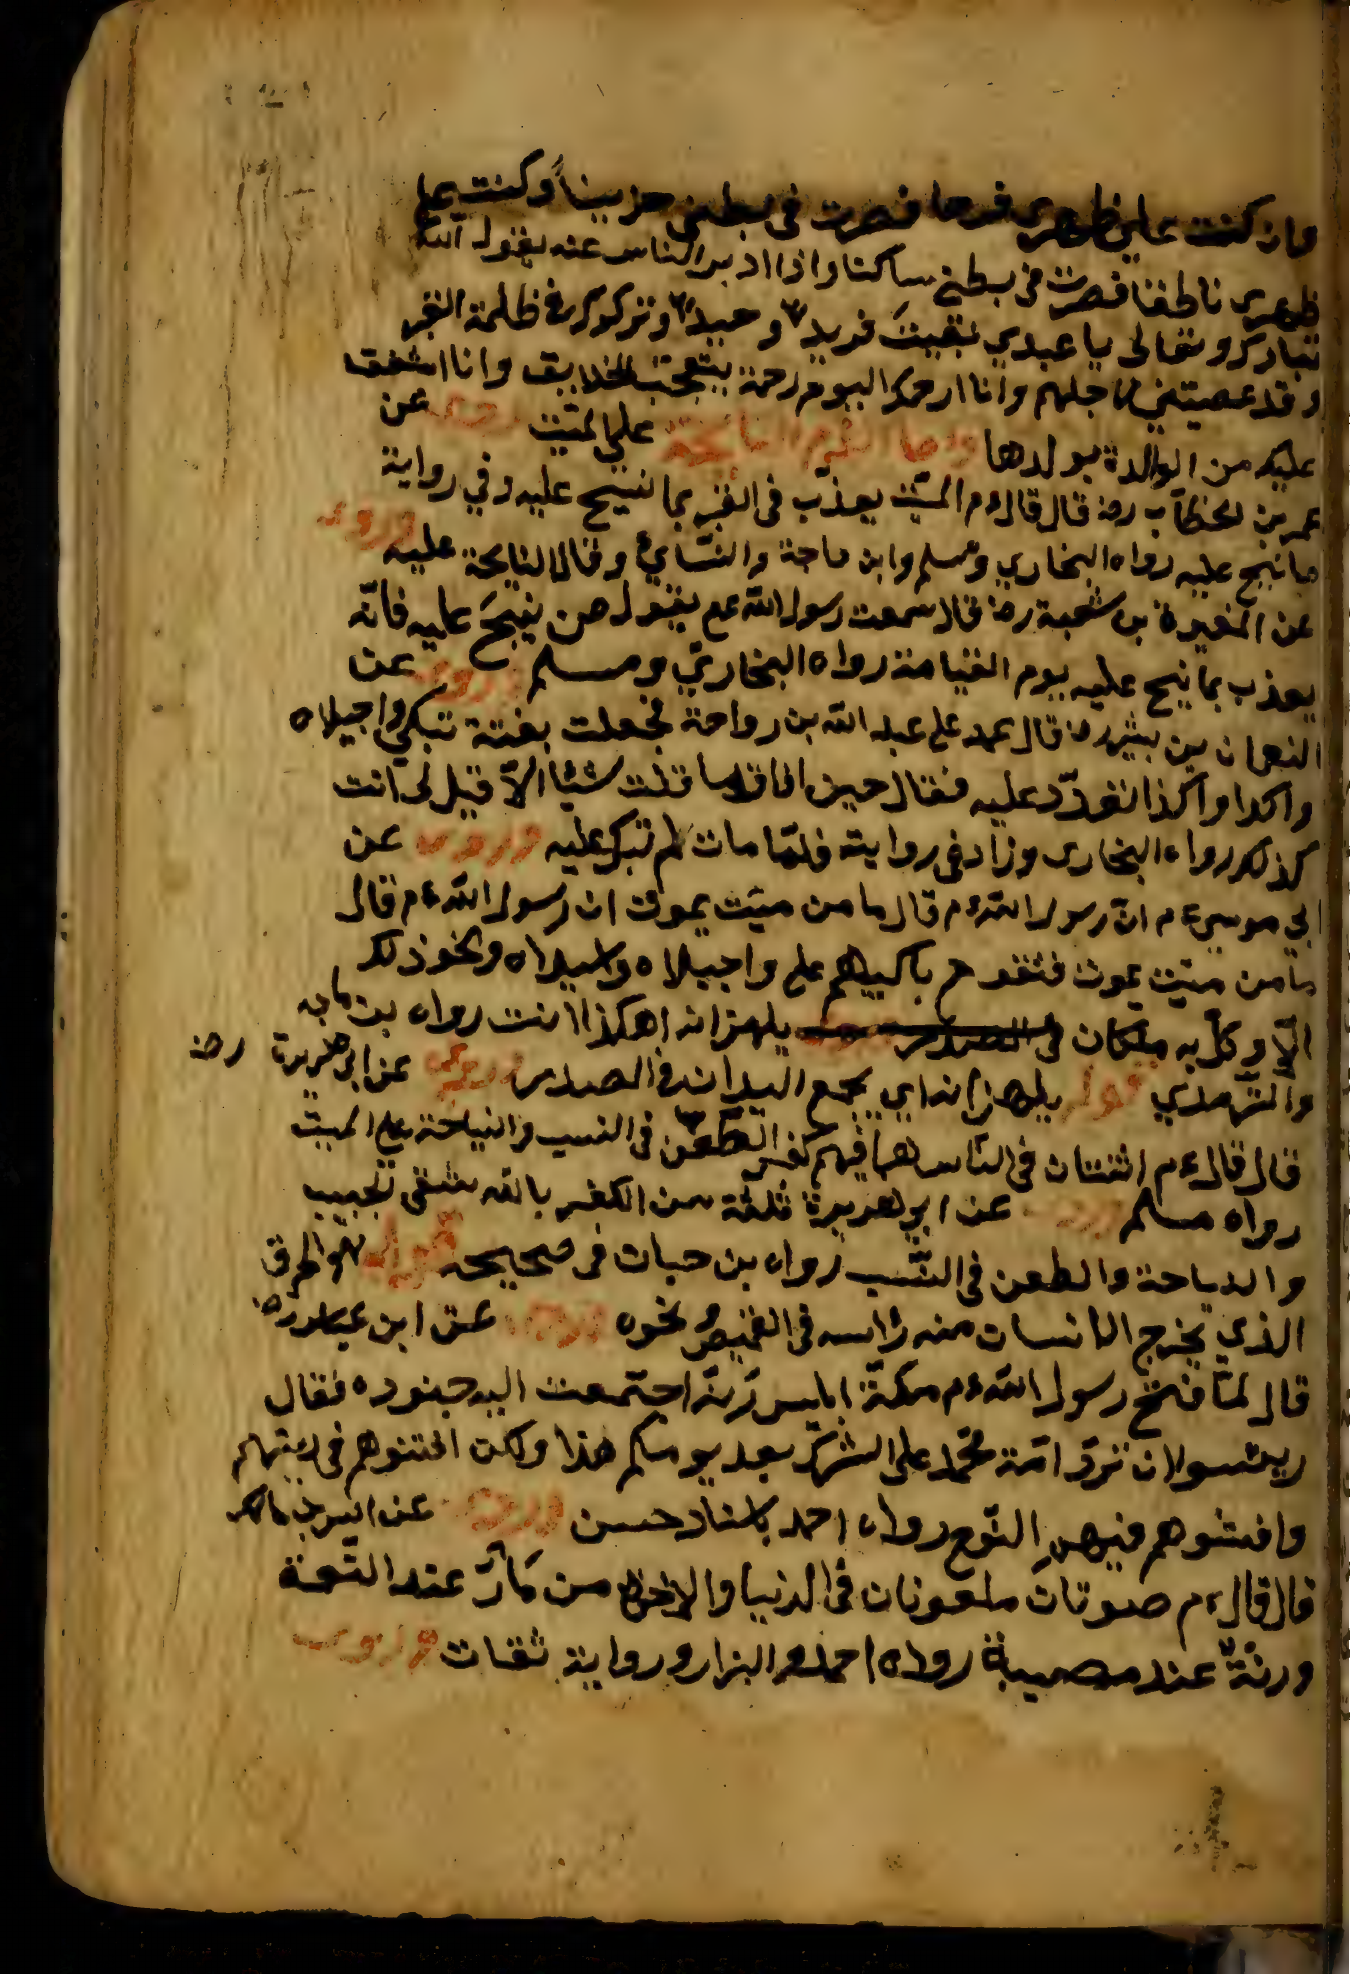 وان كنت على ظهرى فرحا فصرت فى بطنى حزيناً وكنت على
ظهرى ناطقا فصرت فى بطنى ساكنا واذا ادبر الناس عنه يقول الله
تبارك وتعالى يا عبدي بقيت فريدا وحيدا وتركوك فى ظلمة القبر
وقد عصيتنى لاجلهم وانا ارحمك اليوم رحمة يتعجب الخلايق وانا اشفق
عليك من الوالدة بولدها واما النايحة على الميّت روى عن
عمر بن الخطّاب رضه قال قال ءم الميّت يعذّب فى القبر بما نيح عليه وفي رواية
ما نيح عليه رواه البخاري ومسلم وابن ماجة والنسّايُ وقال النايحة عليه وروى
عن المغيرة بن شعبة رضه قال سمعت رسول الله عم يقول من ينيح عليه فانّه
يعذب بما نيح عليه يوم القيامة رواه البخاريّ ومسلم وروى عن
النعمان بن بشير رضه قال عمد على عبد الله بن رواحة فجعلت بغتة تبكى واجبلاه
واكذا واكذا تعدّد عليه فقال حين افاق ما قلت شيئا الاّ قيل لى انت
كذلك رواه البخارى وزاد فى رواية فلمّا مات لم تبك عليه وروى عن
ابي موسى ءم انّ رسول الله ءم قال ما من ميّت يموت ان رسول الله ءم قال
ما من ميّت يموت فتقوم باكيهم على واجبلاه واسيلاه ونحو ذلك
الاّ وكل به ملكان يلهزانه اهكذا انت رواه بن ماجه
والتّرمذي قوله يلهزانه اي بجمع اليدانه فى الصدر وروى عن ابى هريرة رضه
قال قال ءم اثنتان فى النّاس هما فيهم كفر الطّعن فى النسب والنياحة على الميّت
رواه مسلم وروى عن ابو هريرة ثلثة من الكفر بالله شقى الجيب
والنياحة والطعن فى النّسب رواه بن حبان فى صحيحه قوله هو الخرق
الذي يخرج الانسان منه رأسه فى القميص ونحوه وروى عن ابن عباس رضه
قال لمّا فتح رسول الله ءم مكّة ابليس رنّة اجتمعت اليه جنوده فقال
ايئسوا ان تردّ امّة محمّد على الشّرك بعد يومكم هذا ولكن افتنوهم فى دينهم
وافشوهم فيهم النّوح رواه احمد باسناد حسن وروى عن انس بن مالك
قال قال ءم صوتان ملعونان فى الدنيا والاخرة من مارّ عند النّعمة
ورنّةٌ عند مصيبة رواه احمد والبزار ورواية ثقات وروى